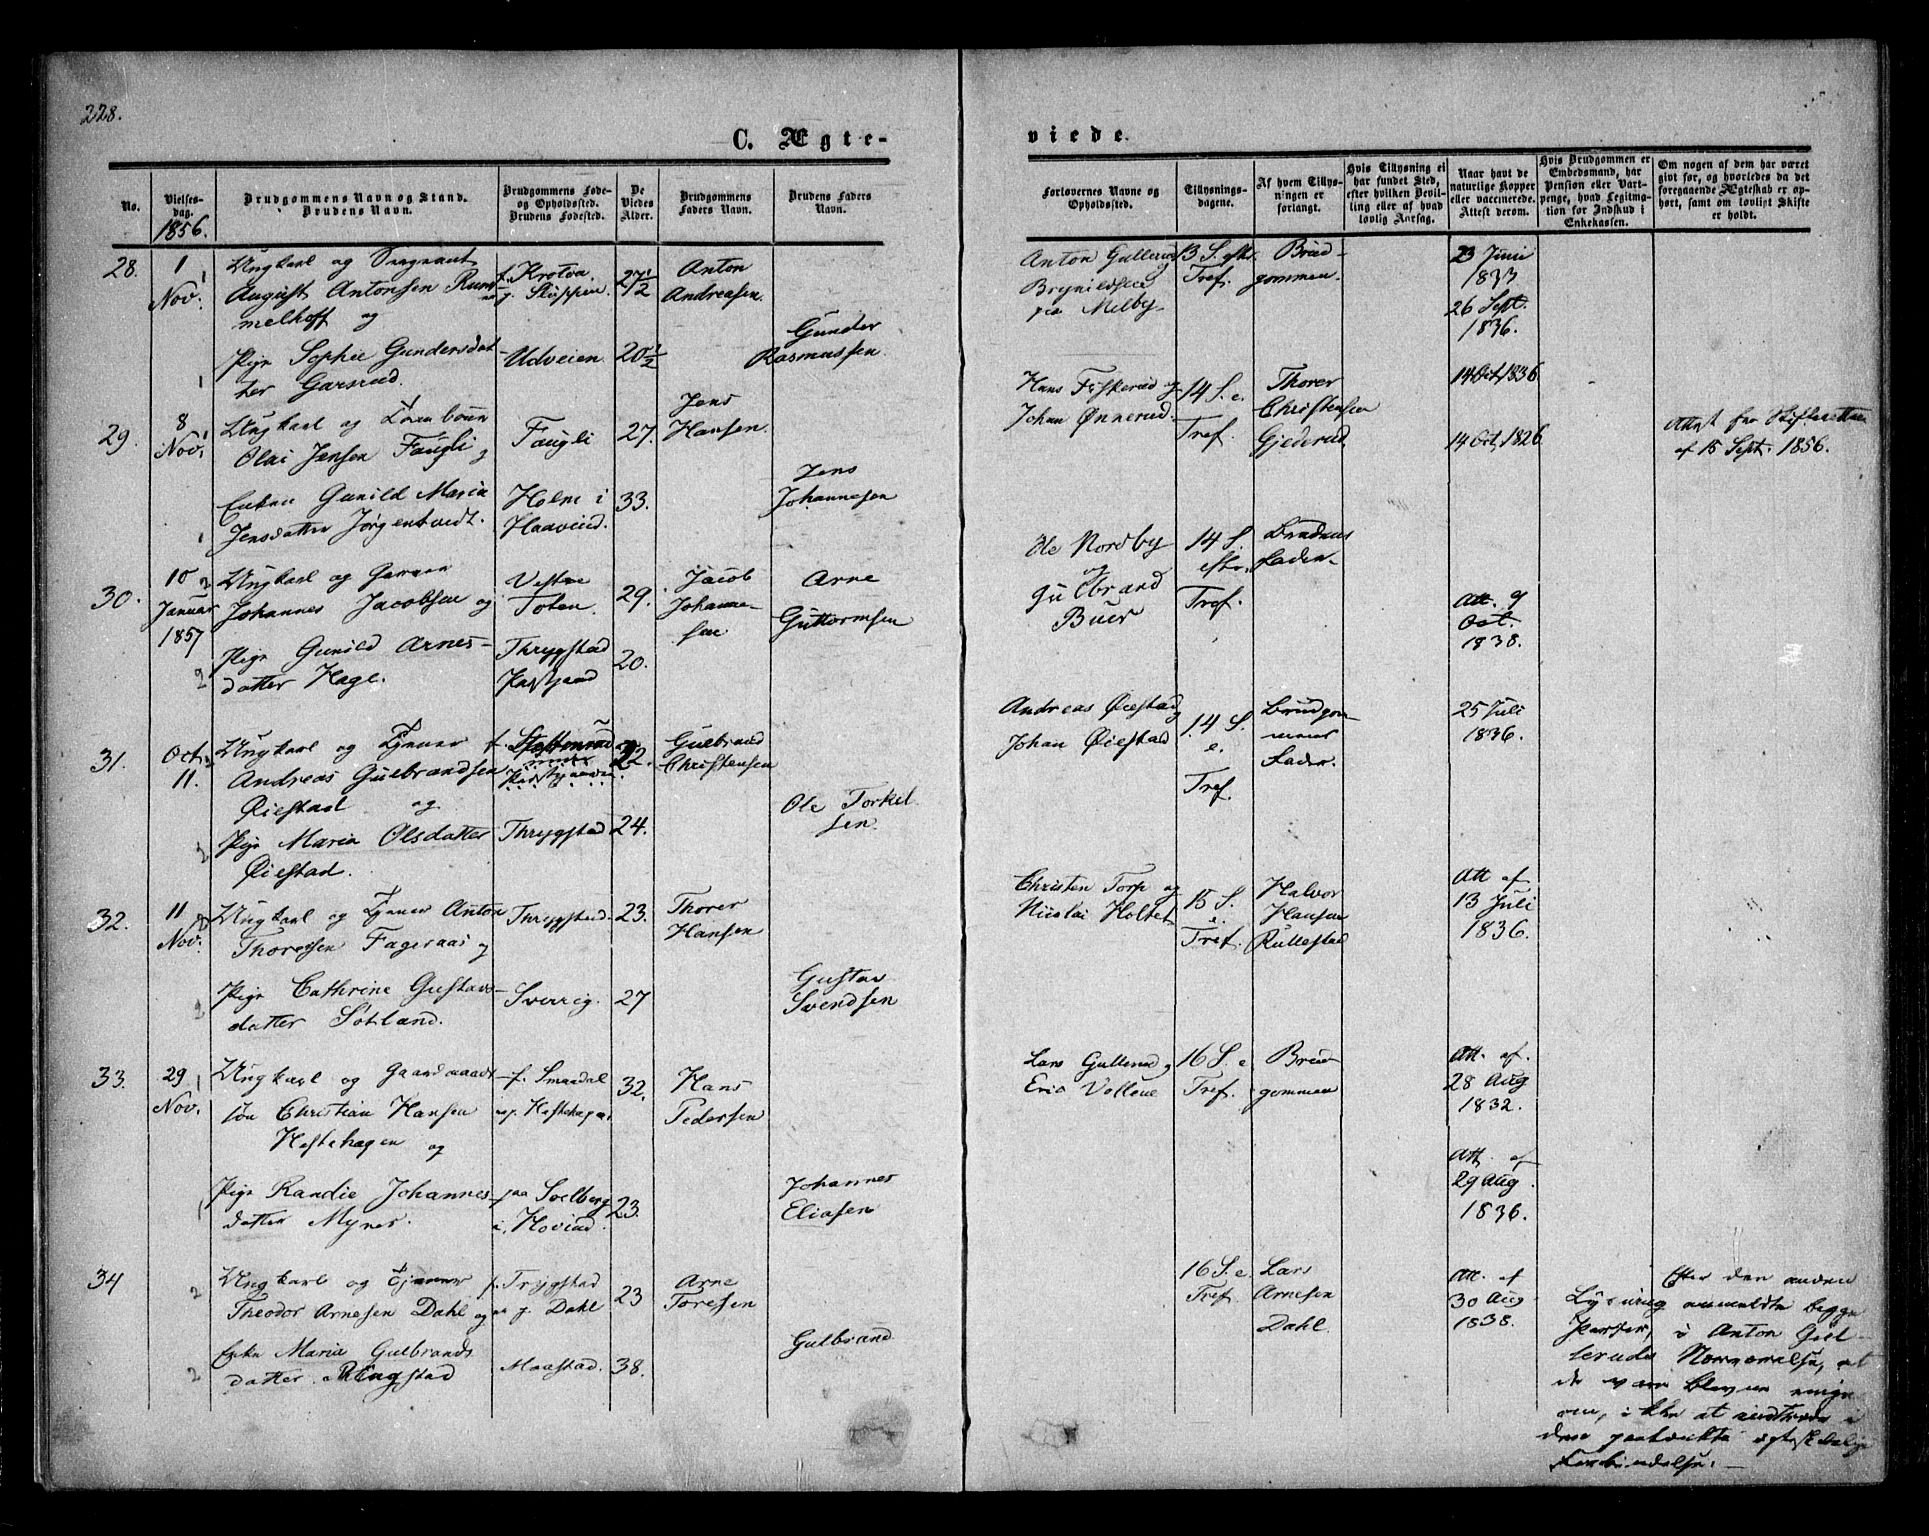 228.
C. Ægte-
viede.
No.
Vielses-
dag.
1856.
Brudgommens Navn og Stand.
Brudens Navn.
Brudgommens Føde-
og Opholdssted.
Brudens Fødested.
De
Viedes
Alder.
Brudgommens
Faders Navn.
Brudens Faders
Navn.
Forlovernes Navne og
Opholdssted.
Tillysnings-
dagene.
Af hvem Tillys-
ningen er
forlangt.
Hvis Tillysning ei
har fundet Sted,
efter hvilken Bevil-
ling eller af hvad
lovlig Aarsag.
Naar havt de
naturlige Kopper
eller vaccinerede.
Attest derom.
Hvis Brudgommen er
Embedsmand, har
Pension eller Vart-
penge, hvad Legitima-
tion for Indskud i
Enkekassen.
Om nogen af dem har været
givt før, og hvorledes da det
foregaaende Ægteskab er op-
hørt, samt om lovligt Skifte
er holdt.
28.
1
Nov.
Ungkarl og Sergeant
August Antonsen Rum-
melhoff og
Pige Sophie Gundersdat-
ter Garsrud.
f. Krotva
g. Slippen.
Udveien.
27½
20½
Anton
Andreasen.
Gunder
Rasmussen.
Anton Gullerud
Brynildsen
paa Melby.
13 S. eftr.
Tref.
Brud-
gommen.
23 Juni
1833
26 Sept.
1836.
29.
8
Nov.
Ungkarl og
Olai Jensen Faugli og
Enken Gunild Maria
Jensdatter Jørgentvedt.
Faugli
Holm i
Haavind.
27.
33.
Jens
Hansen.
Jens
Johannesen
Hans Fiskerud og
Johan Ønnerud.
14 S. e.
Tref.
Thorer
Christensen
Gjederud.
14 Oct. 1836.
14 Oct. 1826
Attest fra Skifteretten
af 15 Sept. 1856.
30.
10
Januar
1857
Ungkarl og Garver
Johannes Jacobsen og
Pige Gunild Arnes-
datter Hage.
Vestre
Toten.
Thrygstad
29.
20.
Jacob
Johanne-
sen
Arne
Guttormsen
Ole Nordby
og
Gulbrand
Buer
14 S.
eftr.
Tref.
Brudens
Fader.
Att. 9
Oct.
1838.
31.
Oct.
11.
Ungkarl og Tjener
Andreas Gulbrandsen
Øiestad og
Pige Maria Olsdatter
Øiestad.
Thrygstad
22.
24.
Gulbrand
Christensen
Ole Torkel-
sen.
Andreas Øiestad
Johan Øiestad
14 S.
e.
Tref.
Brudgom-
mens
Fader.
25 Juli
1836.
32.
11
Nov.
Ungkarl og Tjener Anton
Thoresen Fageraas og
Pige Cathrine Gustavs-
datter Sotland.
Thrygstad.
Sverrig.
23.
27
Thorer
Hansen
Gustav
Svendsen
Christen Torp og
Nicolai Holtet
15 S.
e.
Tref.
Halvor
Hansen
Rullestad
Att af
13 Juli
1836.
33.
29
Nov.
Ungkarl og Gaardmand-
søn Christian Hansen
Hestehagen og
Pige Randie Johannes-
datter Mynes.
f. Smaadal
og Hestehagen.
paa Solberg
i Hovind.
32.
23.
Hans
Pedersen
Johannes
Eliasen
Lars Gullerud og
Eric Vollene
16 S. e
Tref.
Brud-
gommen
Att. af.
28 Aug
1832.
Att. af
29 Aug.
1836.
34
Ungkarl og Tjener
Theodor Arnesen Dahl og
Enke Maria Gulbrands-
datter Ringstad
f. Trygstad
g. Dahl
Maastad.
23
38.
Arne
Toresen
Gulbrand
16 S. e.
Tref.
Lars
Arnesen
Dahl.
Att. af
30 Aug
1838.
Efter den anden
Lysning anmeldte begge
Parter, i Anton Gul-
leruds Nærværelse, at
de vare blevne enige
om, ikke at indtræde i
den paatænkte ægteskabelige
Forbindelse. —